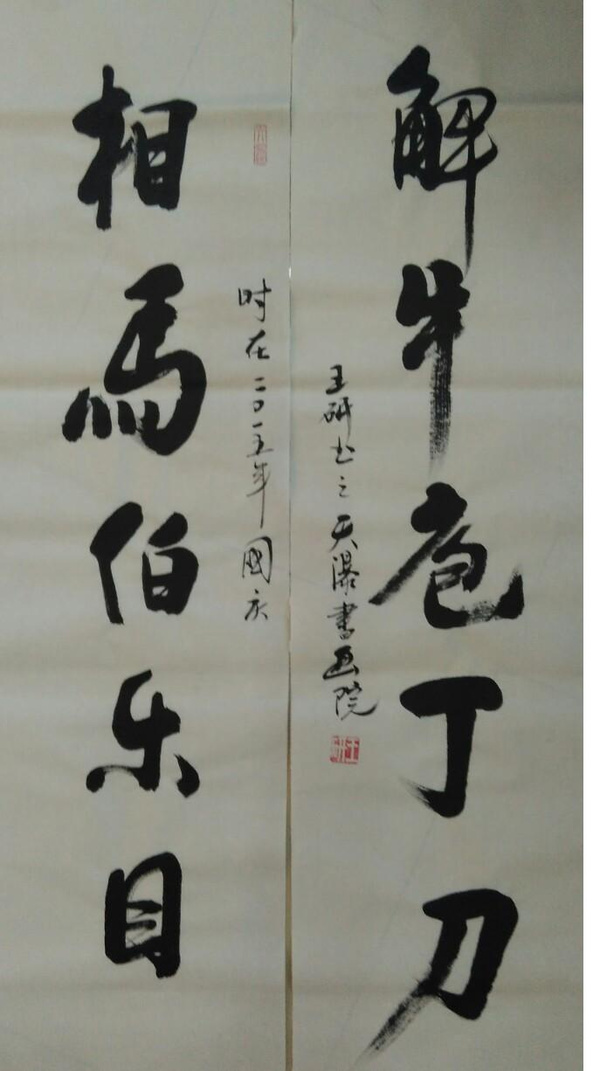 解牛庖丁刀
王研书之天瀑書画院
时在二〇一五年國庆
相馬伯乐目